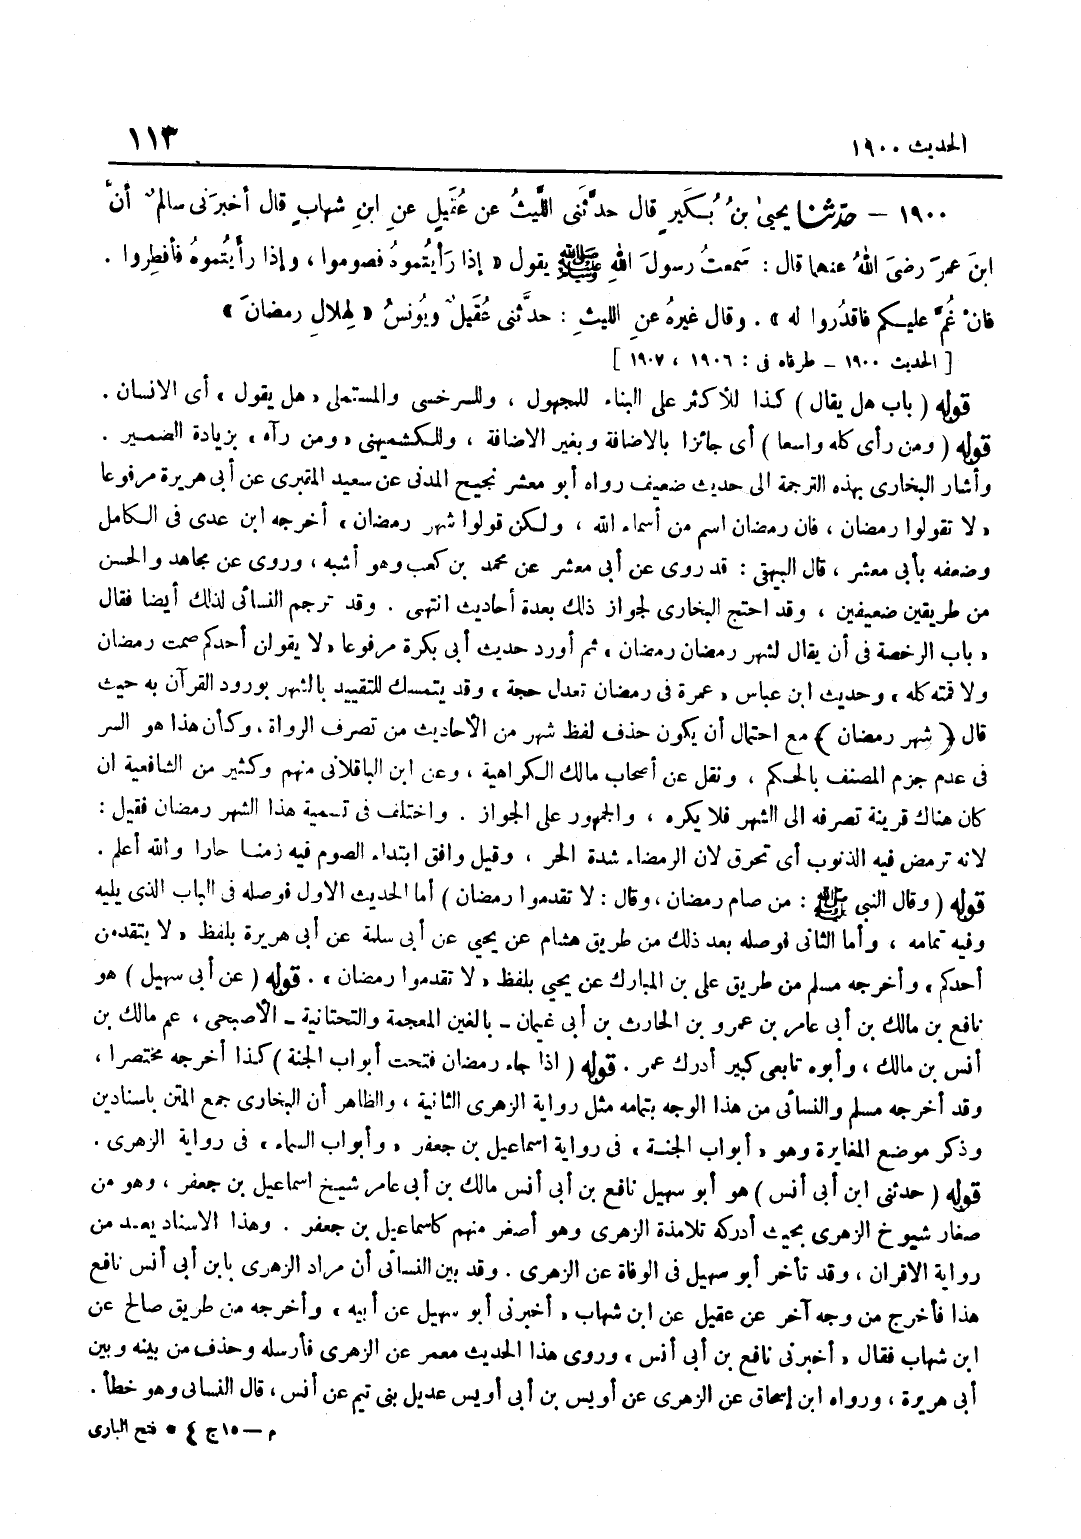 الحديث ١٩٠٠
١١٣
١٩٠٠ – حدثنا يحيىٰ بنُ بُكَيرٍ قال حدَّثَنى اللَّيثُ عن عُقَيلٍ عنِ ابنِ شهابٍ قال أخبرَنى سالمٌ أنَّ
ابنَ عمرَ رضىَ اللهُ عنهما قال : سَمعتُ رسولَ اللهِ ﷺ يقول « إذا رَأيتُموهُ فصوموا ، وإذا رأَيتُموهُ فأفطِروا .
فانْ غُمَّ عليكم فاقدُروا له » . وقال غيرهُ عنِ الليثِ : حدَّثنى عُقَيلٌ ويُونسُ « لِهلالِ رمضانَ »
[ الحديث ١٩٠٠ – طرفاه فى : ١٩٠٦ ، ١٩٠٧ ]
قوله ( باب هل يقال ) كذا للأكثر على البناء للمجهول ، وللسرخسى والمستملى « هل يقول » أى الانسان .
قوله ( ومن رأى كله واسعا ) أى جائزا بالاضافة وبغير الاضافة ، وللكشميهنى « ومن رآه » بزيادة الضمير .
وأشار البخارى بهذه الترجمة الى حديث ضعيف رواه أبو معشر نجيح المدنى عن سعيد المقبرى عن أبى هريرة مرفوعا
« لا تقولوا رمضان ، فان رمضان اسم من أسماء الله ، ولكن قولوا شهر رمضان » أخرجه ابن عدى فى الكامل
وضعفه بأبى معشر ، قال البيهقى : قد روى عن أبى معشر عن محمد بن كعب وهو أشبه ، وروى عن مجاهد والحسن
من طريقين ضعيفين ، وقد احتج البخارى لجواز ذلك بعدة أحاديث انتهى . وقد ترجم النسائى لذلك أيضا فقال
« باب الرخصة فى أن يقال لشهر رمضان رمضان » ثم أورد حديث أبى بكرة مرفوعا « لا يقولن أحدكم صمت رمضان
ولا قمته كله » وحديث ابن عباس « عمرة فى رمضان تعدل حجة » وقد يتمسك للتقييد بالشهر بورود القرآن به حيث
قال ﴿ شهر رمضان ﴾ مع احتمال أن يكون حذف لفظ شهر من الأحاديث من تصرف الرواة ، وكأن هذا هو السر
فى عدم جزم المصنف بالحكم ، ونقل عن أصحاب مالك الكراهية ، وعن ابن الباقلانى منهم وكثير من الشافعية ان
كان هناك قرينة تصرفه الى الشهر فلا يكره ، والجمهور على الجواز . واختلف فى تسمية هذا الشهر رمضان فقيل :
لانه ترمض فيه الذنوب أى تحرق لان الرمضاء شدة الحر ، وقيل وافق ابتداء الصوم فيه زمنا حارا والله أعلم .
قوله ( وقال النبى ﷺ : من صام رمضان ، وقال : لا تقدموا رمضان ) أما الحديث الاول فوصله فى الباب الذى يليه
وفيه تمامه ، وأما الثانى فوصله بعد ذلك من طريق هشام عن يحيى عن أبى سلمة عن أبى هريرة بلفظ « لا يتقدمن
أحدكم » وأخرجه مسلم من طريق على بن المبارك عن يحيى بلفظ « لا تقدموا رمضان » . قوله ( عن أبى سهيل ) هو
نافع بن مالك بن أبى عامر بن عمرو بن الحارث بن أبى غيمان – بالغين المعجمة والتحتانية – الأصبحى ، عم مالك بن
أنس بن مالك ، وأبوه تابعى كبير أدرك عمر . قوله ( اذا جاء رمضان فتحت أبواب الجنة ) كذا أخرجه مختصرا ،
وقد أخرجه مسلم والنسائى من هذا الوجه بتمامه مثل رواية الزهرى الثانية ، والظاهر أن البخارى جمع المتن باسنادين
وذكر موضع المغايرة وهو « أبواب الجنة » فى رواية اسماعيل بن جعفر « وأبواب السماء » فى رواية الزهرى .
قوله ( حدثنى ابن أبى أنس ) هو أبو سهيل نافع بن أبى أنس مالك بن أبى عامر شيخ اسماعيل بن جعفر ، وهو من
صغار شيوخ الزهرى بحيث أدركه تلامذة الزهرى وهو أصغر منهم كاسماعيل بن جعفر . وهذا الاسناد يعد من
رواية الاقران ، وقد تأخر أبو سهيل فى الوفاة عن الزهرى . وقد بين النسائى أن مراد الزهرى بابن أبى أنس نافع
هذا فأخرج من وجه آخر عن عقيل عن ابن شهاب « أخبرنى أبو سهيل عن أبيه » وأخرجه من طريق صالح عن
ابن شهاب فقال « أخبرنى نافع بن أبى أنس » وروى هذا الحديث معمر عن الزهرى فأرسله وحذف من بينه وبين
أبى هريرة ، ورواه ابن إسحاق عن الزهرى عن أويس بن أبى أويس عديل بنى تيم عن أنس ، قال النسائى وهو خطأ .
م – ١٥ ج ٤ * فتح البارى